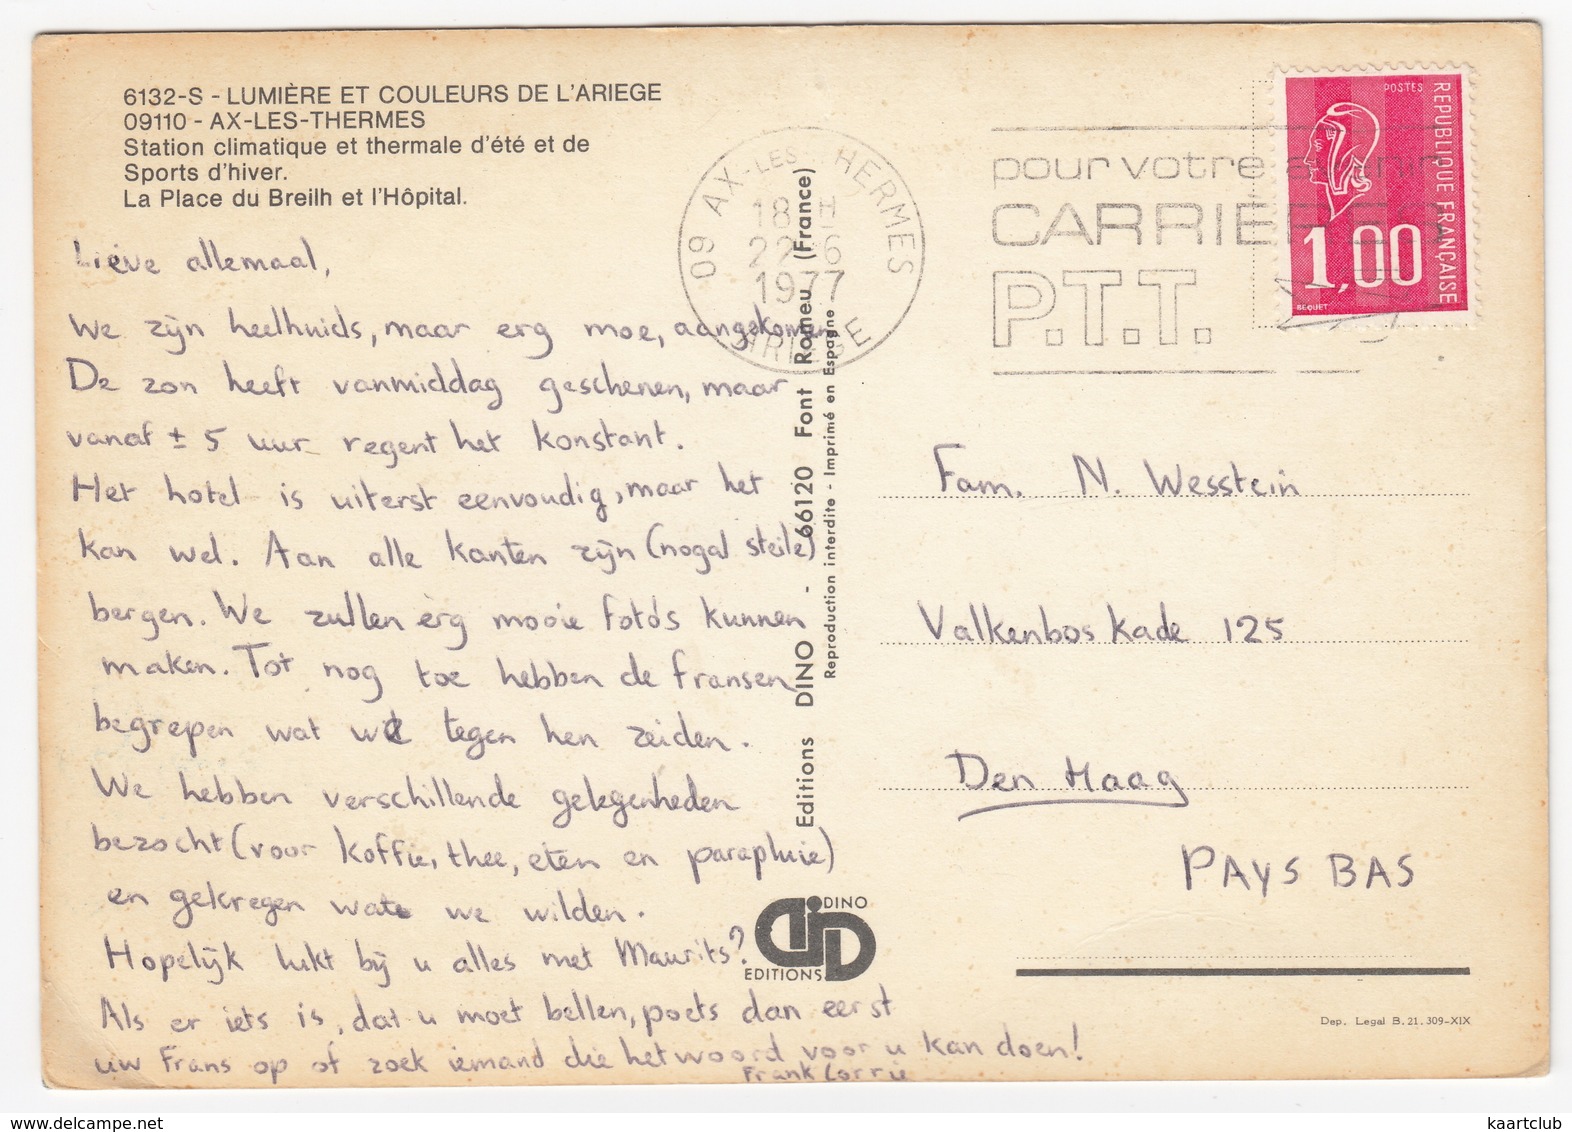 6132-S - LUMIÈRE ET COULEURS DE L'ARIEGE
09110 - AX-LES-THERMES
Station climatique et thermale d'été et de
Sports d'hiver.
La Place du Breilh et l'Hôpital.
Lieve allemaal,
We zijn heelhuids, maar erg moe, aangekomen
De zon heeft vanmiddag geschenen, maar
vanaf ± 5 uur regent het konstant.
Het hotel is uiterst eenvoudig, maar het
kan wel. Aan alle kanten zijn (nogal steile)
bergen. We zullen erg mooie foto's kunnen
maken. Tot nog toe hebben de Fransen
begrepen wat we tegen hen zeiden.
We hebben verschillende gelegenheden
bezocht (voor koffie, thee, eten en parapluie)
en gekregen wat we wilden.
Hopelijk lukt bij u alles met Maurits?
Als er iets is, dat u moet bellen, poets dan eerst
uw Frans op of zoek iemand die het woord voor u kan doen!
Frank Corrie
Editions DINO - 66120 Font Romeu (France)
Reproduction interdite - Imprimé en Espagne
DINO
EDITIONS
09 AX-LES-THERMES
18 H
22-6
1977
ARIEGE
pour votre avenir
CARRIERES
P.T.T.
POSTES
REPUBLIQUE FRANÇAISE
1,00
BEQUET
Fam. N. Wesstein
Valkenboskade 125
Den Haag
PAYS BAS
Dep. Legal B. 21.309-XIX
www.delcampe.net
kaartclub